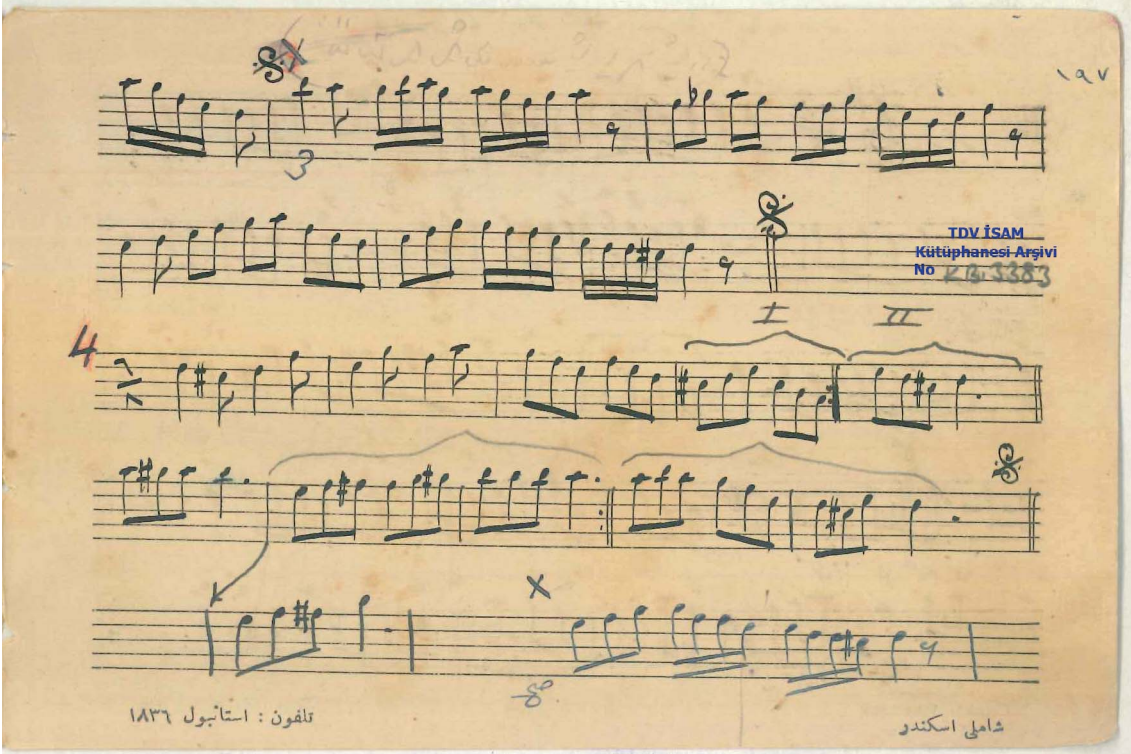 ١٩٧
3
TDV İSAM
Kütüphanesi Arşivi
No KB.3383
I II
4
تلفون : استانبول ١٨٣٦
شاملی اسكندر